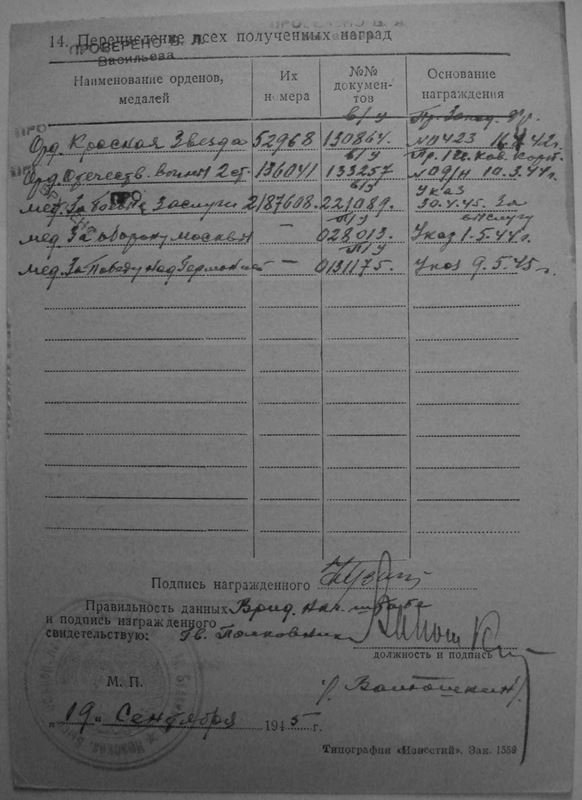 14. Перечисление всех полученных наград
ПРОВЕРЕНО В. Л.
Васильева
Наименование орденов, медалей
Их номера
№№ документов
Основание награждения
в/у Пр. Запад. Фр.
Орд. Красная Звезда 52968 130864. №0423
в/у Пр. 1 гв. Кав. Корп.
Орд. Отечеств. войны 2 ст. 136041 133257 №09/н 10.3.44г.
в/з Указ
мед. За боевые заслуги 2187608. 221089. 30.4.45. За
п/у выслугу
мед. За оборону Москвы — 028013. Указ 1.5.44г.
п/у
мед. За Победу над Германией — 0131175. Указ 9.5.45г.
Подпись награжденного
Правильность данных Врид. нач. штаба
и подпись награжденного
свидетельствую: Гв. Полковник
должность и подпись
М. П.
„19" Сентября 1945г.
Типография «Известий». Зак. 1559